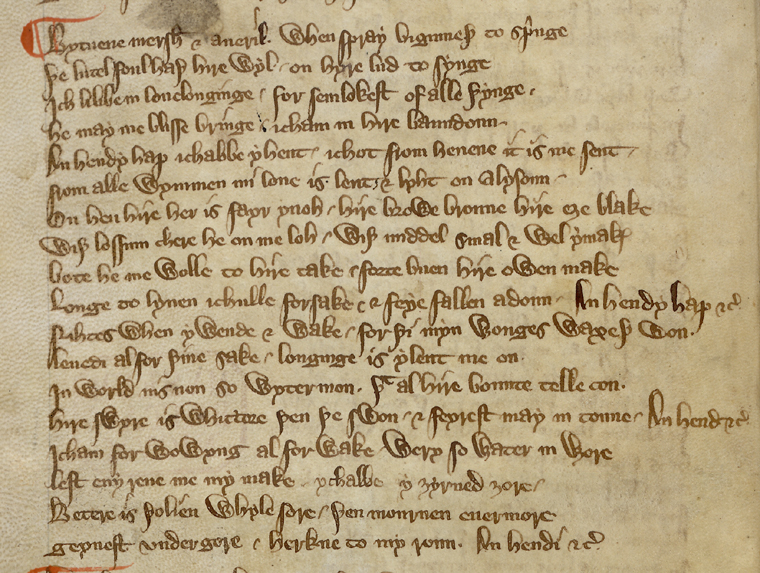 Bytuene mersh & aueril. When spray biginneþ to springe
þe lutel foul haþ hire Wyl. on hyre lud to synge
Ich libbe in louelonginge. for semlokest of alle þynge.
he may me blisse bringe. icham in hire baundoun.
An hendy hap ichabbe yhent. ichot from heuene it is me sent.
from alle Wymmen mi loue is lent. & lyht on Alysoun.
On heu hire her is fayr ynoh. hire browe broune hire eȝe blake
Wiþ lossum chere he on me loh. Wiþ middel smal & Wel ymake
bote he me Wolle to hire take. forte buen hire owen make
Longe to lyuen ichulle forsake. & feye fallen adoun. An hendy hap &c.
Nihtes when y Wende & Wake. for þi myn Wonges Waxeþ Won.
leuedi al for þine sake. longinge is ylent me on.
In World nis non so Wyter mon. þt al hire bounte telle con.
hire swyre is Whittore þen þe swon. & feyrest may in toune. An hend &c.
Icham for Wowyng al forwake. Wery so Water in Wore
lest eny reue me my make. ychabbe y ȝyrned ȝore.
Betere is þolien Whyle sore. þen mournen euermore.
geynest vnder gore. herkne to my roun. An hendi &c.